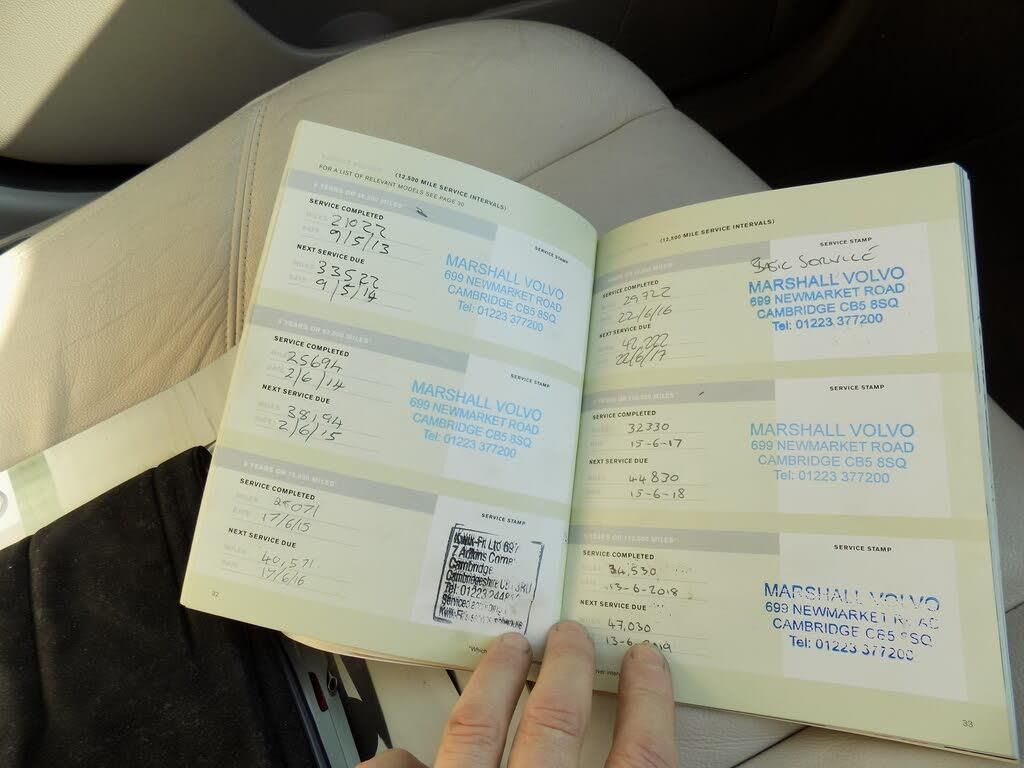 (12,500 MILE SERVICE INTERVALS)
FOR A LIST OF RELEVANT MODELS SEE PAGE 30
SERVICE COMPLETED
MILES 21022
DATE 9/5/13
NEXT SERVICE DUE
MILES 33522
DATE 9/5/14
SERVICE STAMP
MARSHALL VOLVO
699 NEWMARKET ROAD
CAMBRIDGE CB5 8SQ
Tel: 01223 377200
SERVICE COMPLETED
MILES 25694
DATE 2/6/14
NEXT SERVICE DUE
MILES 38,194
DATE 2/6/15
SERVICE STAMP
MARSHALL VOLVO
699 NEWMARKET ROAD
CAMBRIDGE CB5 8SQ
Tel: 01223 377200
SERVICE COMPLETED
MILES 28071
DATE 17/6/15
NEXT SERVICE DUE
MILES 40,571
DATE 17/6/16
SERVICE STAMP
Kwik-Fit Ltd
Cambridge
Cambridgeshire
Tel: 01223
32
(12,500 MILE SERVICE INTERVALS)
SERVICE COMPLETED
29,722
22/6/16
NEXT SERVICE DUE
42,222
22/6/17
SERVICE STAMP
BASIC SERVICE
MARSHALL VOLVO
699 NEWMARKET ROAD
CAMBRIDGE CB5 8SQ
Tel: 01223 377200
SERVICE COMPLETED
32330
15-6-17
NEXT SERVICE DUE
44830
15-6-18
SERVICE STAMP
MARSHALL VOLVO
699 NEWMARKET ROAD
CAMBRIDGE CB5 8SQ
Tel: 01223 377200
SERVICE COMPLETED
34,530
13-6-2018
NEXT SERVICE DUE
47,030
SERVICE STAMP
MARSHALL VOLVO
699 NEWMARKET ROAD
CAMBRIDGE CB5 8SQ
Tel: 01223 377200
33